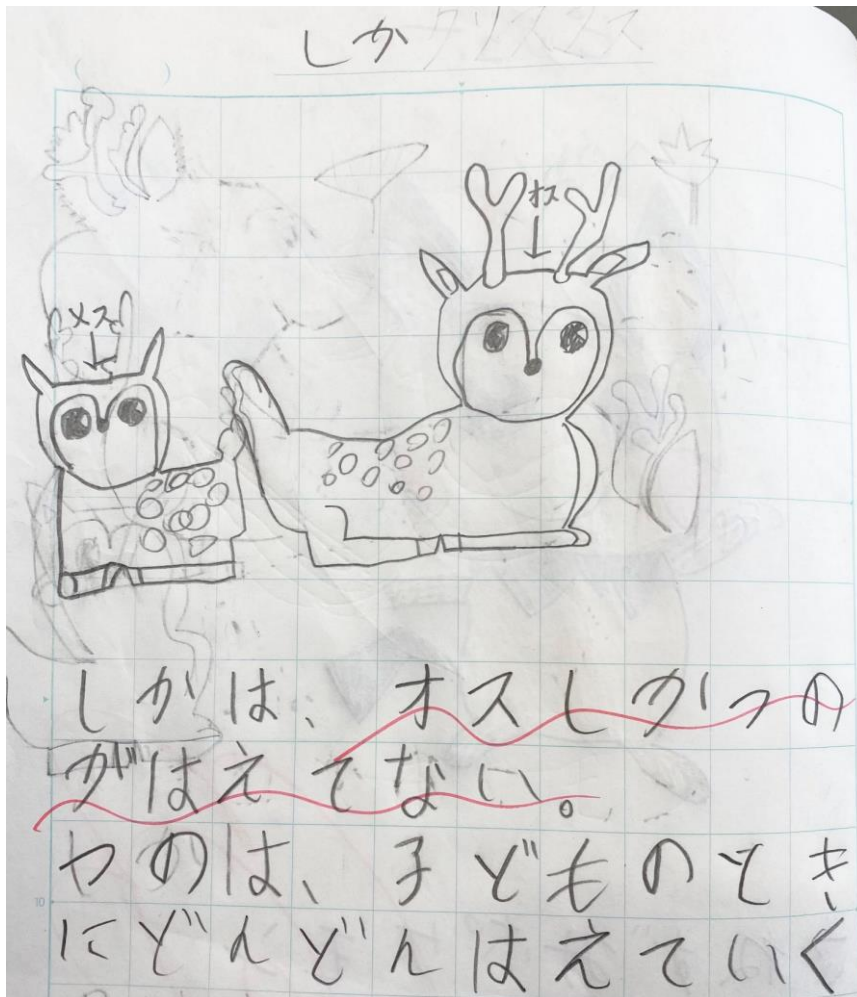 しか
オス
メス
しかは、オスしかつの
がはえてない。
つのは、子どものとき
10
にどんどんはえていく